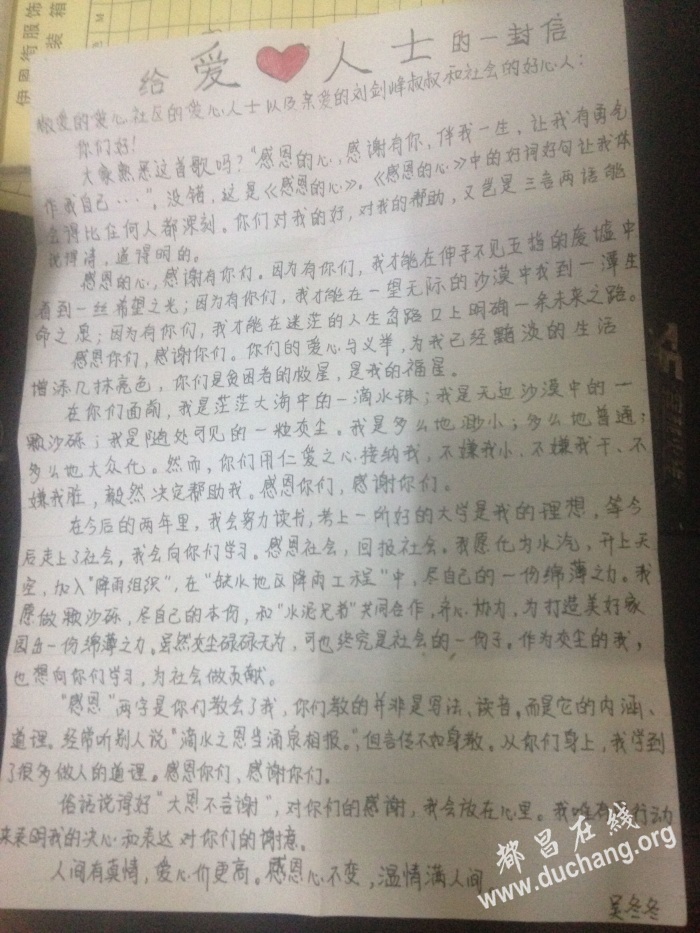 给爱人士的一封信
敬爱的爱心社区的爱心人士以及亲爱的刘剑峰叔叔和社会的好心人:
你们好!
大家熟悉这首歌吗?“感恩的心,感谢有你,伴我一生,让我有勇气
作我自己····”。没错,这是《感恩的心》。《感恩的心》中的好词好句让我体
会得比任何人都深刻。你们对我的好,对我的帮助,又岂是三言两语能
说得清,道得明的。
感恩的心,感谢有你们。因为有你们,我才能在伸手不见五指的废墟中
看到一丝希望之光;因为有你们,我才能在一望无际的沙漠中找到一潭生
命之泉;因为有你们,我才能在迷茫的人生岔路口上明确一条未来之路。
感恩你们,感谢你们。你们的爱心与义举,为我已经黯淡的生活
增添几抹亮色,你们是贫困者的救星,是我的福星。
在你们面前,我是茫茫大海中的一滴水珠;我是无边沙漠中的一
颗沙砾;我是随处可见的一粒灰尘。我是多么地渺小;多么地普通;
多么地大众化。然而,你们用仁爱之心接纳我,不嫌我小、不嫌我干、不
嫌我脏,毅然决定帮助我。感恩你们,感谢你们。
在今后的两年里,我会努力读书,考上一所好的大学是我的理想,等今
后走上了社会,我会向你们学习。感恩社会,回报社会。我愿化为水汽,升上天
空,加入“降雨组织”,在“缺水地区降雨工程”中,尽自己的一份绵薄之力。我
愿做颗沙砾,尽自己的本份,和“水泥兄弟”共同合作,齐心协力,为打造美好家
园出一份绵薄之力。虽然灰尘碌碌无为,可也终究是社会的一份子。作为灰尘的我,
也想向你们学习,为社会做贡献。
“感恩”两字是你们教会了我,你们教的并非是写法、读音。而是它的内涵、
道理。经常听别人说“滴水之恩当涌泉相报。”,但言传不如身教。从你们身上,我学到
了很多做人的道理。感恩你们,感谢你们。
俗话说得好“大恩不言谢”,对你们的感谢,我会放在心里。我唯有行动
来表明我的决心和表达对你们的谢意。
人间有真情,爱心价更高。感恩心不变,温情满人间
吴冬冬
都昌在线
www.duchang.org